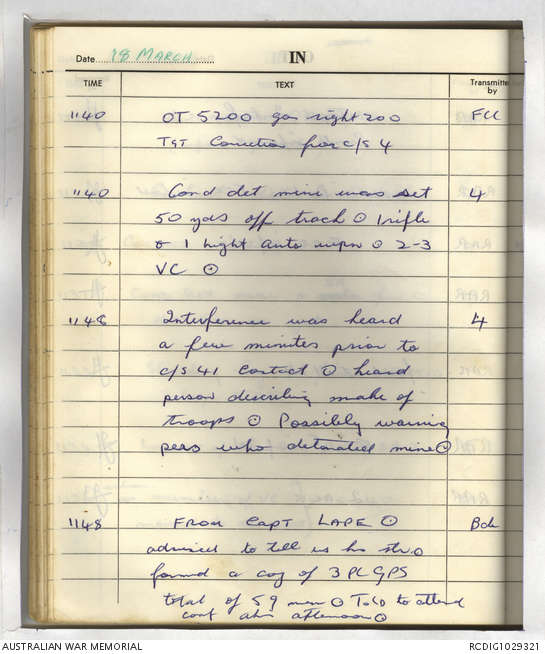 Date 18 MARCH IN
TIME TEXT Transmitted by
1140 OT 5200 gon right 200 FCC
TGT Correction from c/s 4
1140 Comd det mine was set 4
50 yds off track ⊙ 1 rifle
& 1 light auto wpn ⊙ 2-3
VC ⊙
1148 Interference was heard 4
a few minutes prior to
c/s 41 contact ⊙ heard
person describing make of
troops ⊙ Possibly warning
pers who detonated mine ⊙
1148 FROM CAPT LAPE ⊙
advised to tell us his str ⊙
formed a coy of 3 PL GPS
total of 59 men ⊙ Told to attend
conf this afternoon ⊙
AUSTRALIAN WAR MEMORIAL RCDIG1029321